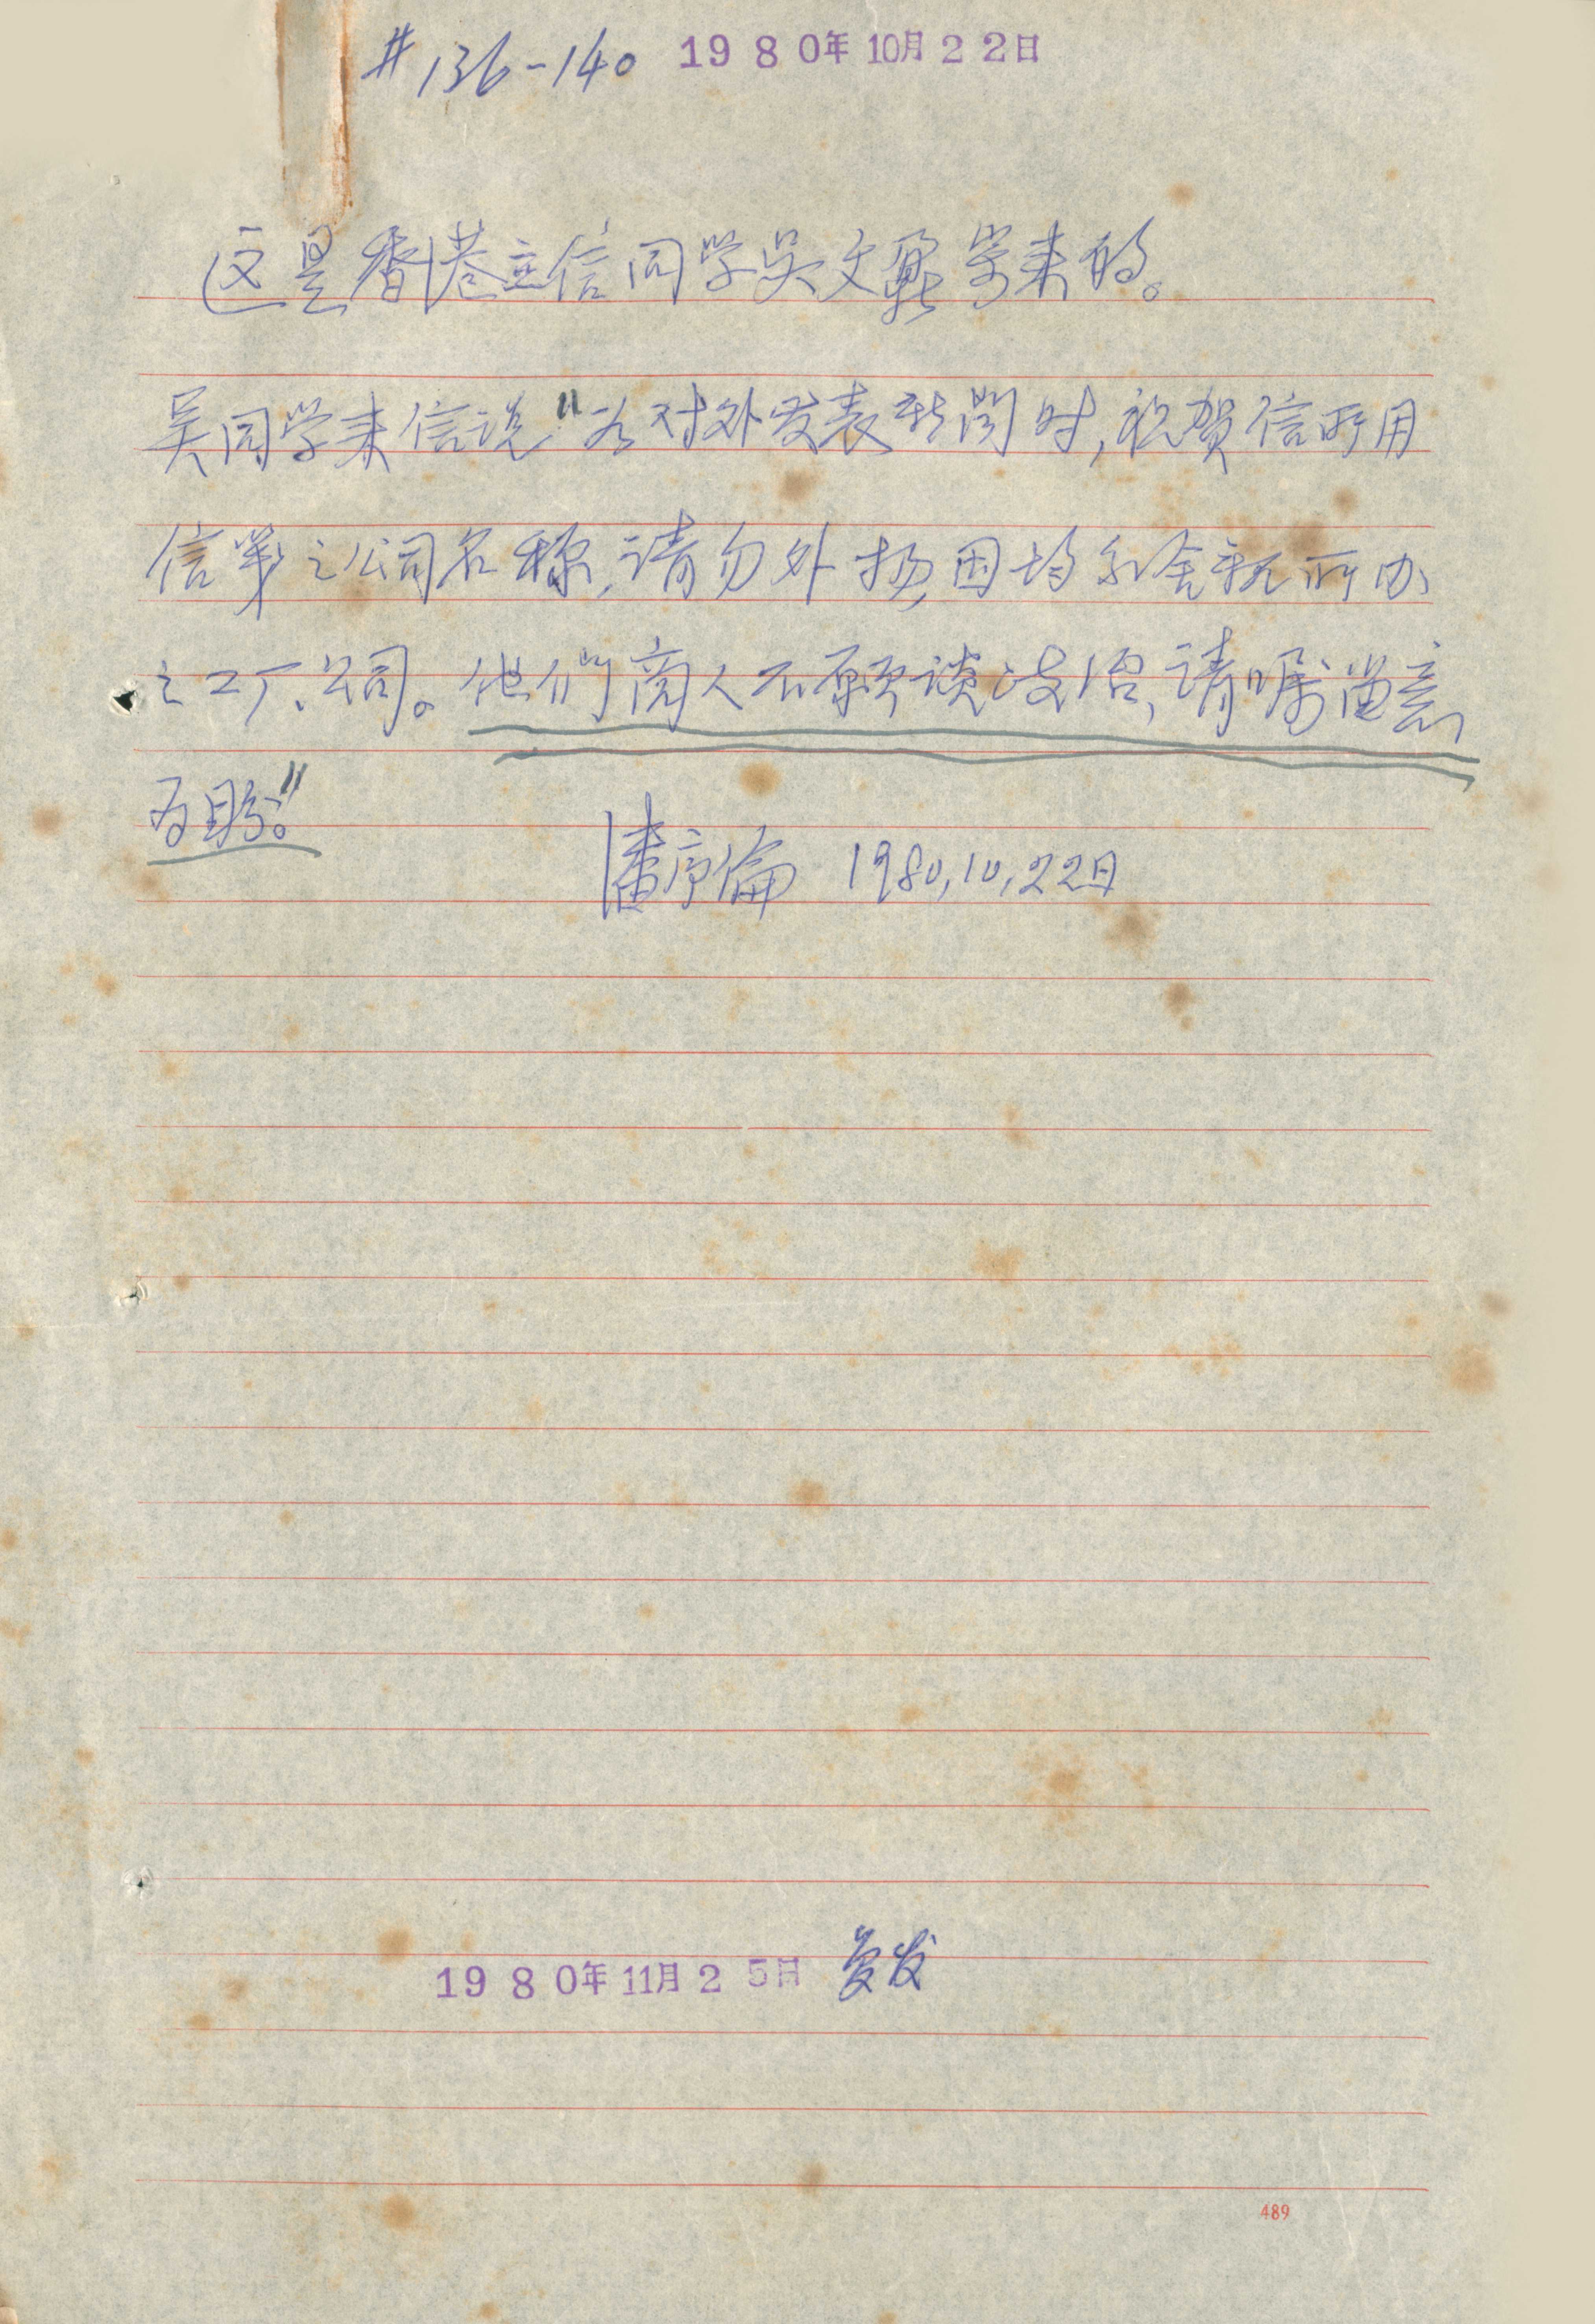 #136-140 1980年10月22日
这是香港立信同学吴文 寄来的。
吴同学来信说"如对外发表新闻时,祝贺信所用
信笺之公司名称,请勿外扬,因均系舍亲所办
之工厂、公司。他们商人不愿谈政治,请嘱留意
为盼。"
潘序倫 1980,10,22日
1980年11月25日 复发
489